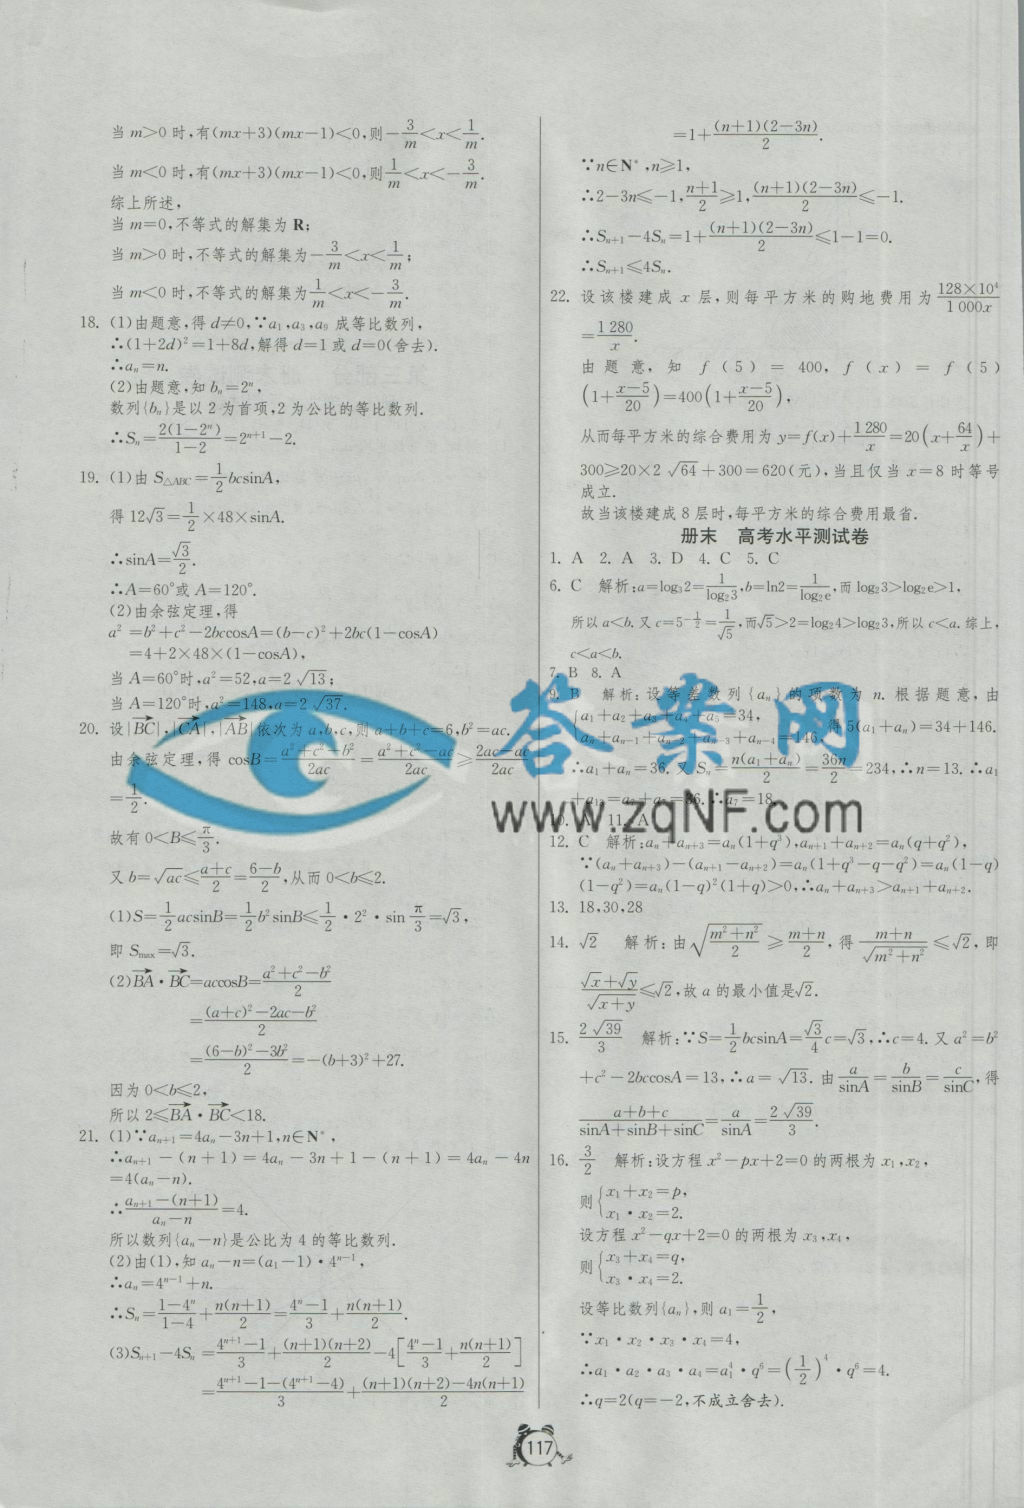 当 m>0 时,有(mx+3)(mx-1)<0,则-3/m<x<1/m.
当 m<0 时,有(mx+3)(mx-1)<0,则1/m<x<-3/m.
综上所述,
当 m=0,不等式的解集为 R;
当 m>0 时,不等式的解集为-3/m<x<1/m;
当 m<0 时,不等式的解集为1/m<x<-3/m.
18. (1)由题意,得 d≠0,∵a₁,a₃,a₉ 成等比数列,
∴(1+2d)²=1+8d,解得 d=1 或 d=0(舍去).
∴aₙ=n.
(2)由题意,知 bₙ=2ⁿ,
数列{bₙ}是以 2 为首项,2 为公比的等比数列.
∴Sₙ=2(1-2ⁿ)/(1-2)=2ⁿ⁺¹-2.
19. (1)由 S△ABC=1/2 bcsinA,
得 12√3=1/2×48×sinA.
∴sinA=√3/2.
∴A=60°或 A=120°.
(2)由余弦定理,得
a²=b²+c²-2bccosA=(b-c)²+2bc(1-cosA)
=4+2×48×(1-cosA),
当 A=60°时,a²=52,a=2√13;
当 A=120°时,a²=148,a=2√37.
20. 设|BC→|,|CA→|,|AB→|依次为 a,b,c,则 a+b+c=6,b²=ac.
由余弦定理,得 cosB=(a²+c²-b²)/2ac=(a²+c²-ac)/2ac≥(2ac-ac)/2ac
=1/2.
故有 0<B≤π/3.
又 b=√ac≤(a+c)/2=(6-b)/2,从而 0<b≤2.
(1)S=1/2 acsinB=1/2 b²sinB≤1/2·2²·sin π/3=√3,
即 Smax=√3.
(2)BA→·BC→=accosB=(a²+c²-b²)/2
=((a+c)²-2ac-b²)/2
=((6-b)²-3b²)/2=-(b+3)²+27.
因为 0<b≤2,
所以 2≤BA→·BC→<18.
21. (1)∵aₙ₊₁=4aₙ-3n+1,n∈N*,
∴aₙ₊₁-(n+1)=4aₙ-3n+1-(n+1)=4aₙ-4n
=4(aₙ-n).
∴(aₙ₊₁-(n+1))/(aₙ-n)=4.
所以数列{aₙ-n}是公比为 4 的等比数列.
(2)由(1),知 aₙ-n=(a₁-1)·4ⁿ⁻¹,
∴aₙ=4ⁿ⁻¹+n.
∴Sₙ=(1-4ⁿ)/(1-4)+n(n+1)/2=(4ⁿ-1)/3+n(n+1)/2.
(3)Sₙ₊₁-4Sₙ=(4ⁿ⁺¹-1)/3+(n+1)(n+2)/2-4[(4ⁿ-1)/3+n(n+1)/2]
=(4ⁿ⁺¹-1-(4ⁿ⁺¹-4))/3+((n+1)(n+2)-4n(n+1))/2
=1+(n+1)(2-3n)/2.
∵n∈N*,n≥1,
∴2-3n≤-1,(n+1)/2≥1,(n+1)(2-3n)/2≤-1.
∴Sₙ₊₁-4Sₙ=1+(n+1)(2-3n)/2≤1-1=0.
∴Sₙ₊₁≤4Sₙ.
22. 设该楼建成 x 层,则每平方米的购地费用为(128×10⁴)/(1 000x)
=1 280/x.
由题意,知 f(5)=400,f(x)=f(5)
(1+(x-5)/20)=400(1+(x-5)/20),
从而每平方米的综合费用为 y=f(x)+1 280/x=20(x+64/x)+
300≥20×2√64+300=620(元),当且仅当 x=8 时等号
成立.
故当该楼建成 8 层时,每平方米的综合费用最省.
册末 高考水平测试卷
1. A 2. A 3. D 4. C 5. C
6. C 解析:a=log₃2=1/log₂3,b=ln2=1/log₂e,而 log₂3>log₂e>1,
所以 a<b. 又 c=5^(-1/2)=1/√5,而√5>2=log₂4>log₂3,所以 c<a. 综上,
c<a<b.
7. B 8. A
9. B 解析:设等差数列{aₙ}的项数为 n. 根据题意,由
{a₁+a₂+a₃+a₄+a₅=34,
aₙ+aₙ₋₁+aₙ₋₂+aₙ₋₃+aₙ₋₄=146, 得 5(a₁+aₙ)=34+146.
∴a₁+aₙ=36. 又 Sₙ=n(a₁+aₙ)/2=36n/2=234,∴n=13. ∴a₁
+a₁₃=a₇+a₇=36. ∴a₇=18.
10. A 11. A
12. C 解析:aₙ+aₙ₊₃=aₙ(1+q³),aₙ₊₁+aₙ₊₂=aₙ(q+q²),
∵(aₙ+aₙ₊₃)-(aₙ₊₁-aₙ₊₂)=aₙ(1+q³-q-q²)=aₙ(1-q)
(1-q²)=aₙ(1-q)²(1+q)>0,∴aₙ+aₙ₊₃>aₙ₊₁+aₙ₊₂.
13. 18,30,28
14. √2 解析:由√((m²+n²)/2)≥(m+n)/2,得(m+n)/√(m²+n²)≤√2,即
(√x+√y)/√(x+y)≤√2,故 a 的最小值是√2.
15. 2√39/3 解析:∵S=1/2 bcsinA=√3/4 c=√3,∴c=4. 又 a²=b²
+c²-2bccosA=13,∴a=√13. 由 a/sinA=b/sinB=c/sinC,得
(a+b+c)/(sinA+sinB+sinC)=a/sinA=2√39/3.
16. 3/2 解析:设方程 x²-px+2=0 的两根为 x₁,x₂,
则{x₁+x₂=p,
x₁·x₂=2.
设方程 x²-qx+2=0 的两根为 x₃,x₄,
则{x₃+x₄=q,
x₃·x₄=2.
设等比数列{aₙ},则 a₁=1/2,
∵x₁·x₂·x₃·x₄=4,
∴a₁·a₂·a₃·a₄=a₁⁴·q⁶=(1/2)⁴·q⁶=4.
∴q=2(q=-2,不成立舍去).
117
答案网
www.zqNF.com